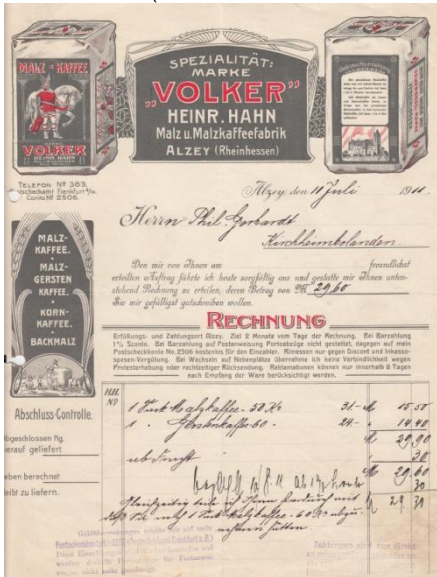 MALZ-KAFFEE
VOLKER
HEINR. HAHN
SPEZIALITÄT:
MARKE
"VOLKER"
HEINR. HAHN
Malz u. Malzkaffeefabrik
ALZEY (Rheinhessen)
Gebrauchsanweisung
TELEFON Nº 383.
Postscheckamt Frankfurt a/M.
Conto Nº 2506.
Alzey, den 11 Juli 1911.
Herrn Phil. Gerhardt
Kirchheimbolanden.
MALZ-
KAFFEE.
MALZ-
GERSTEN
KAFFEE.
KORN-
KAFFEE.
BACKMALZ
Den mir von Ihnen am freundlichst
erteilten Auftrag führte ich heute sorgfältig aus und gestatte mir Ihnen unten-
stehend Rechnung zu erteilen, deren Betrag von M. 29,60
Sie mir gefälligst gutschreiben wollen.
RECHNUNG
Erfüllungs- und Zahlungsort Alzey. Ziel 2 Monate vom Tage der Rechnung. Bei Barzahlung
1% Sconto. Bei Barzahlung auf Postanweisung Portoabzüge nicht gestattet, dagegen auf mein
Postscheckkonto No. 2506 kostenlos für den Einzahler. Rimessen nur gegen Discont und Inkasso-
spesen-Vergütung. Bei Wechseln auf Nebenplätze übernehme ich keine Verbindlichkeit wegen
Protesterhebung oder rechtzeitiger Rücksendung. Reklamationen können nur innerhalb 8 Tagen
nach Empfang der Ware berücksichtigt werden.
Abschluss-Controlle.
abgeschlossen Kg.
hierauf geliefert
eben berechnet
bleibt zu liefern.
Nº
1 Malzkaffee 50 31.- M 15 50
1 " Gerstenkaffee 60 24.- " 14 40
M 29 90
ab Fracht " 30
M 29 60
30
29 30
Zahlungen sind nur direkt